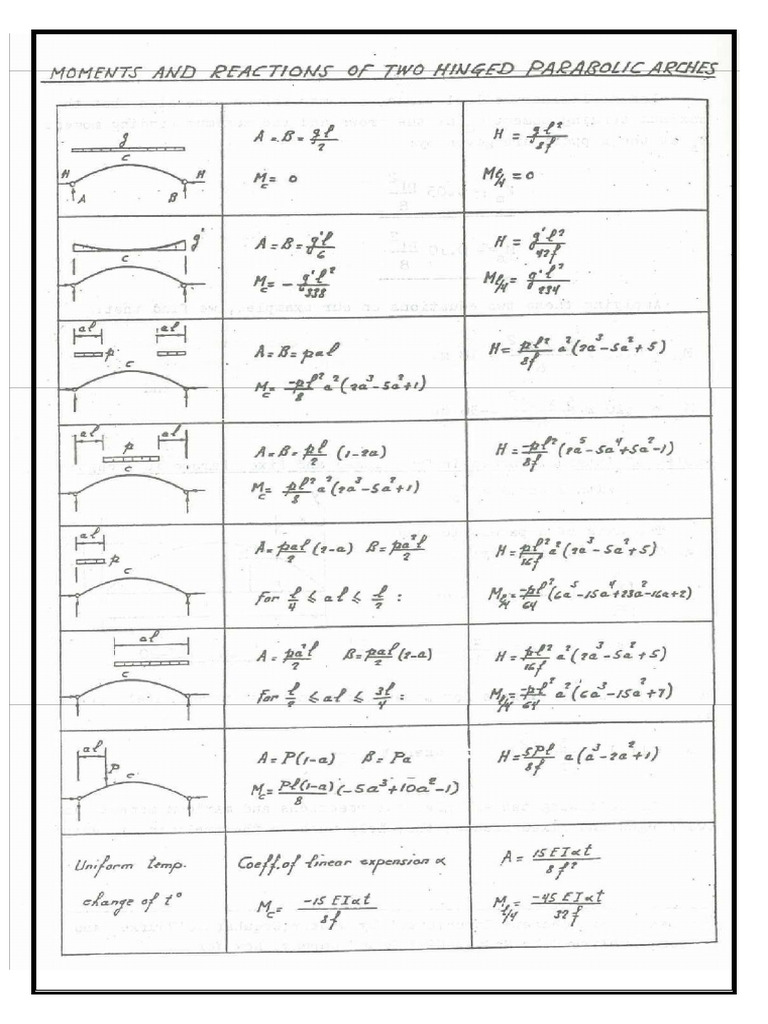 MOMENTS AND REACTIONS OF TWO HINGED PARABOLIC ARCHES
g
C
H H
A B
A = B = gl/2
M_c = 0
H = gl²/8f
M_l/4 = 0
g'
C
A = B = g'l/6
M_c = - g'l²/338
H = g'l²/42f
M_l/4 = g'l²/234
al al
p
C
A = B = pal
M_c = -pl²/8 a²(2a³-5a²+1)
H = pl²/8f a²(2a³-5a²+5)
al p al
C
A = B = pl/2 (1-2a)
M_c = pl²/8 a²(2a³-5a²+1)
H = -pl²/8f (2a⁵-5a⁴+5a²-1)
al
p
C
A = pal/2 (2-a) B = pa²l/2
For l/4 ≤ al ≤ l/2 :
H = pl²/16f a²(2a³-5a²+5)
M_l/4 = -pl²/64 (6a⁵-15a⁴+23a²-16a+2)
al
C
A = pa²l/2 B = pal/2 (2-a)
For l/2 ≤ al ≤ 3l/4 :
H = pl²/16f a²(2a³-5a²+5)
M_l/4 = -pl²/64 a²(6a³-15a²+7)
al
P
C
A = P(1-a) B = Pa
M_c = Pl(1-a)/8 (-5a³+10a²-1)
H = 5Pl/8f a(a³-2a²+1)
Uniform temp.
change of t°
Coeff. of linear expension α
M_c = -15 EIαt/8f
A = 15 EIαt/8f²
M_l/4 = -45 EIαt/32f